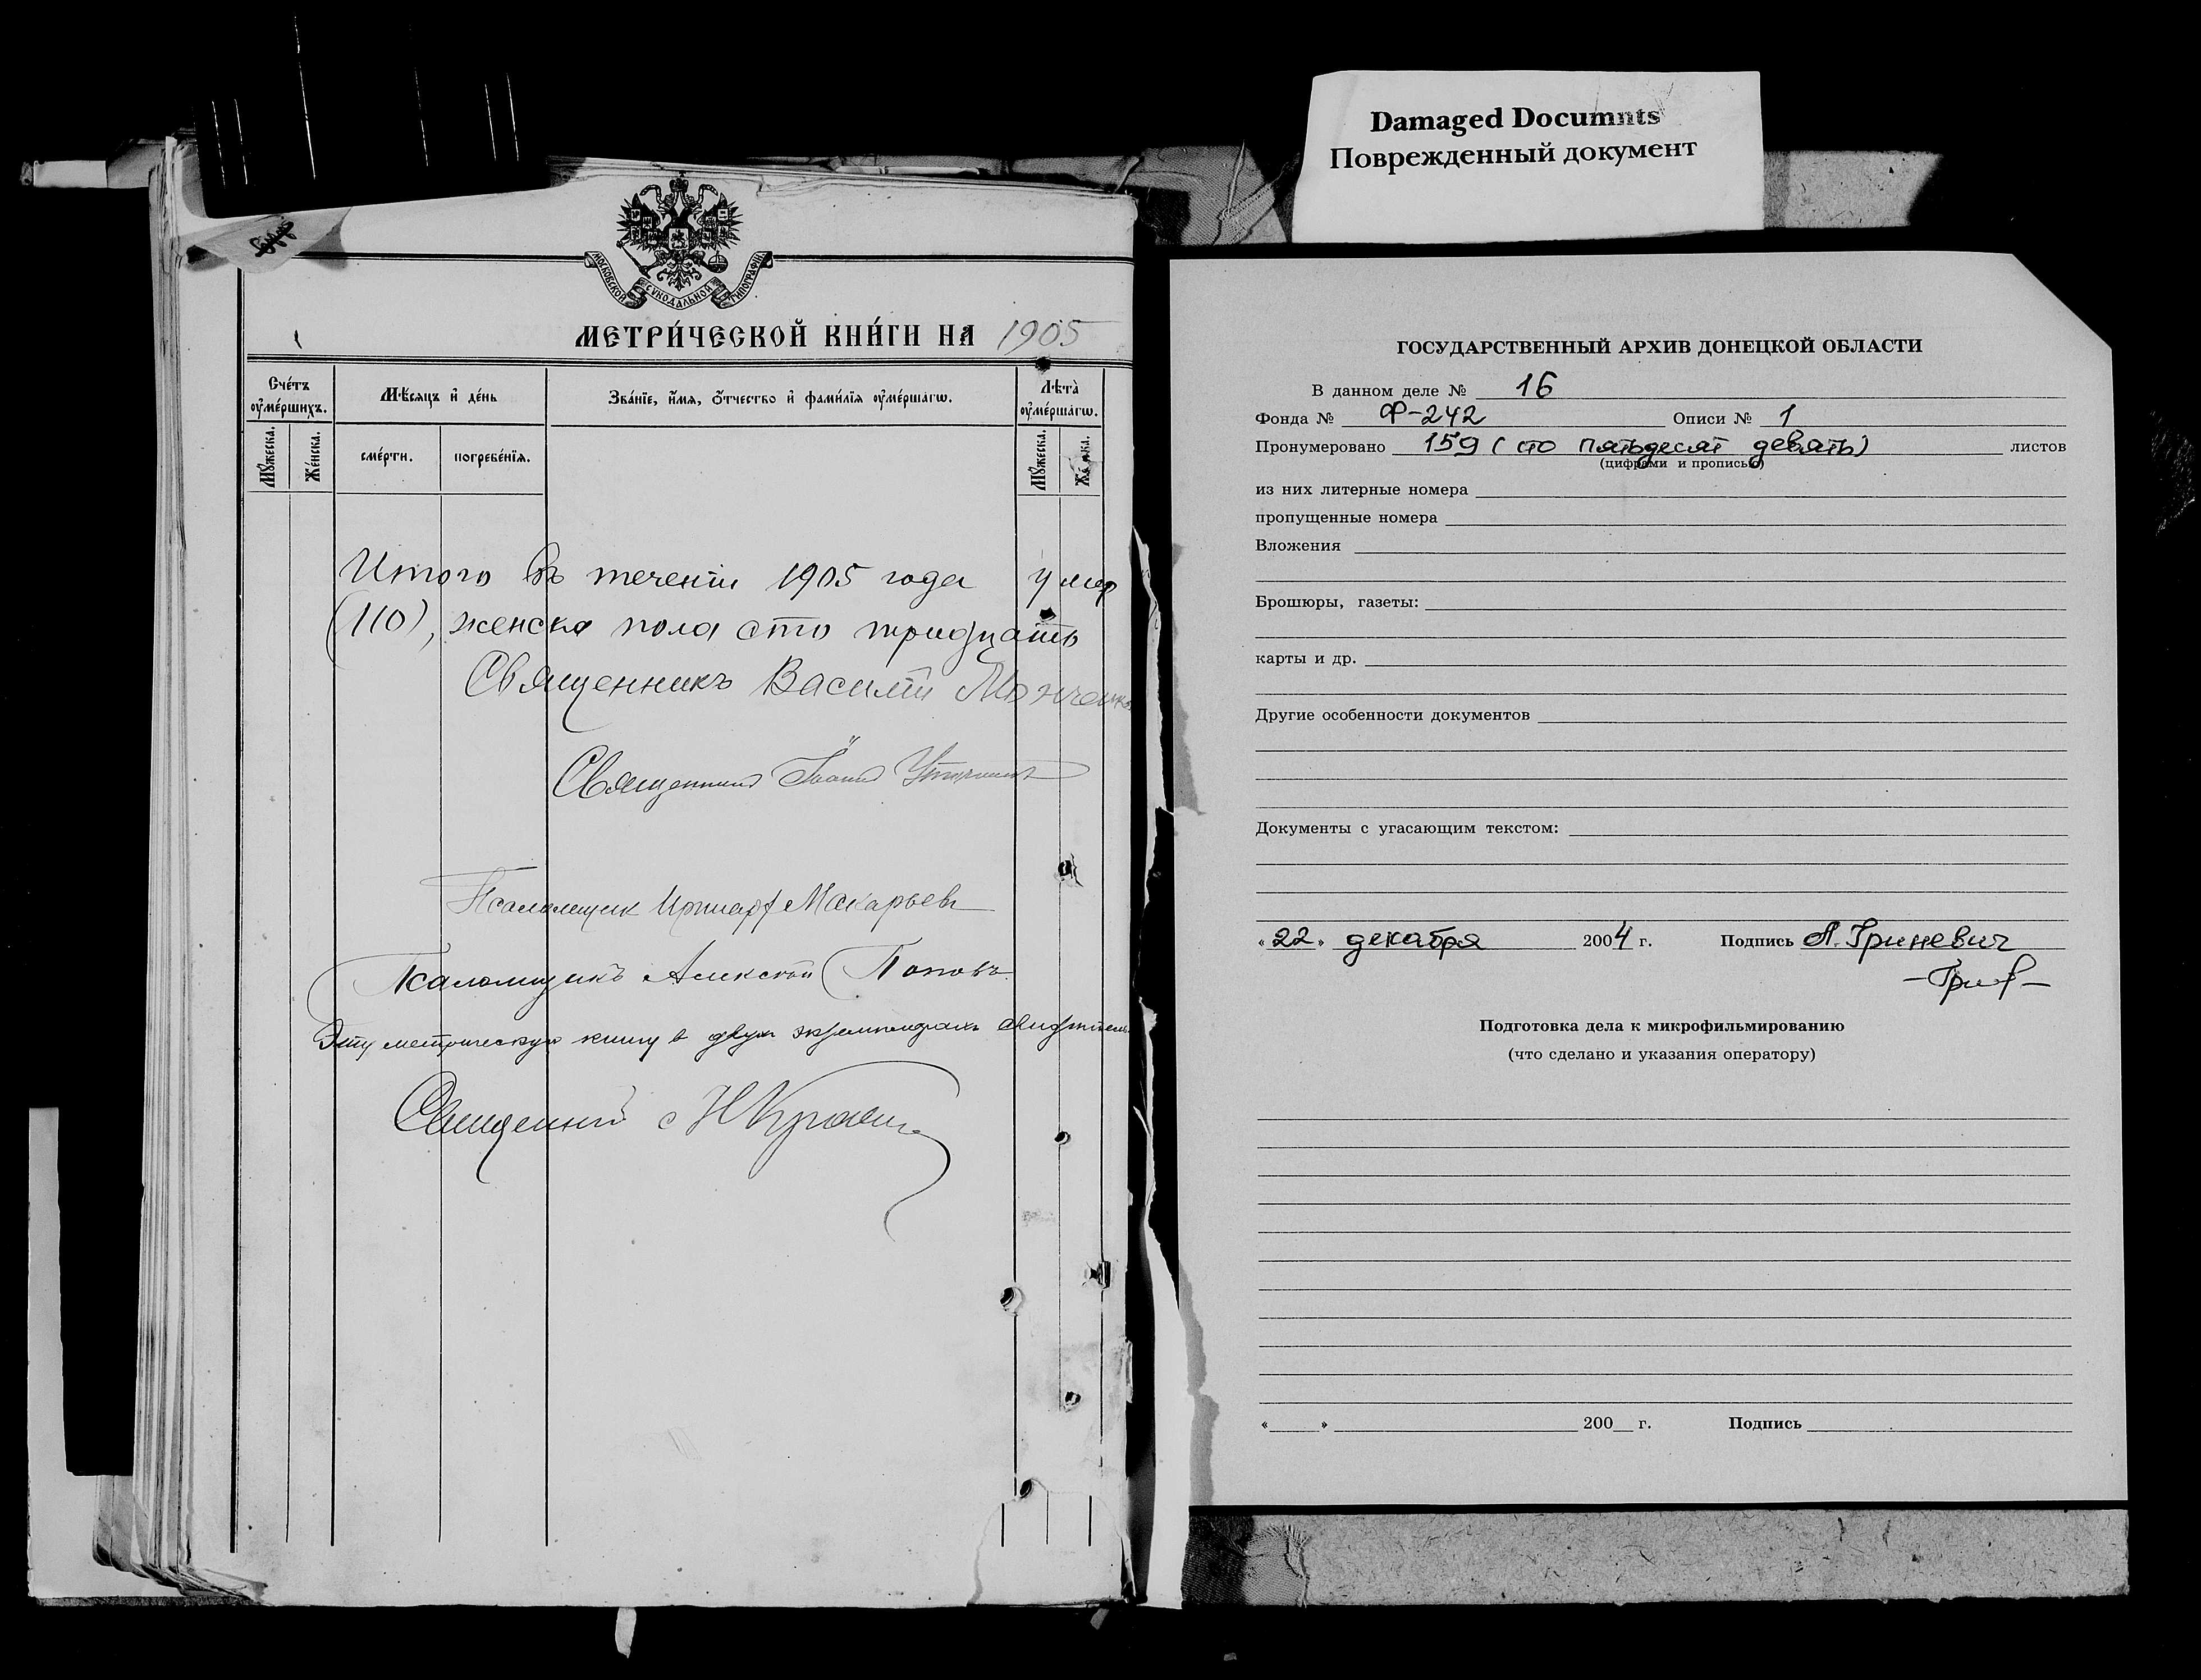 Damaged Documnts
Поврежденный документ
МОСКОВСКОЙ СѴНОДАЛЬНОЙ ТИПОГРАФІИ
МЕТРИ́ЧЕСКОЙ КНИ́ГИ НА 1905
Сче́тъ ᲂу҆ме́ршихъ.
Мѣ́сѧцъ и҆ де́нь
Зва́нїе, и҆́мѧ, ѻ҆́тчество и҆ фами́лїѧ ᲂу҆ме́ршагѡ.
Лѣта̀ ᲂу҆ме́ршагѡ.
Мꙋ́жеска.
Же́нска.
сме́рти.
погребе́нїѧ.
Мꙋ́жеска.
Итого въ теченіи 1905 года умер
(110), женска пола сто тридцать
Священникъ Василій
Священникъ Іоаннъ
Псаломщик Макарьевъ
Псаломщикъ Алексѣй Поповъ
Эту метрическую книгу в двух экземплярахъ
Священникъ
ГОСУДАРСТВЕННЫЙ АРХИВ ДОНЕЦКОЙ ОБЛАСТИ
В данном деле № 16
Фонда № Ф-242 Описи № 1
Пронумеровано 159 (сто пятьдесят девять) листов
(цифрами и прописью)
из них литерные номера
пропущенные номера
Вложения
Брошюры, газеты:
карты и др.
Другие особенности документов
Документы с угасающим текстом:
«22» декабря 2004 г. Подпись А. Гриневич
Подготовка дела к микрофильмированию
(что сделано и указания оператору)
« » 200 г. Подпись